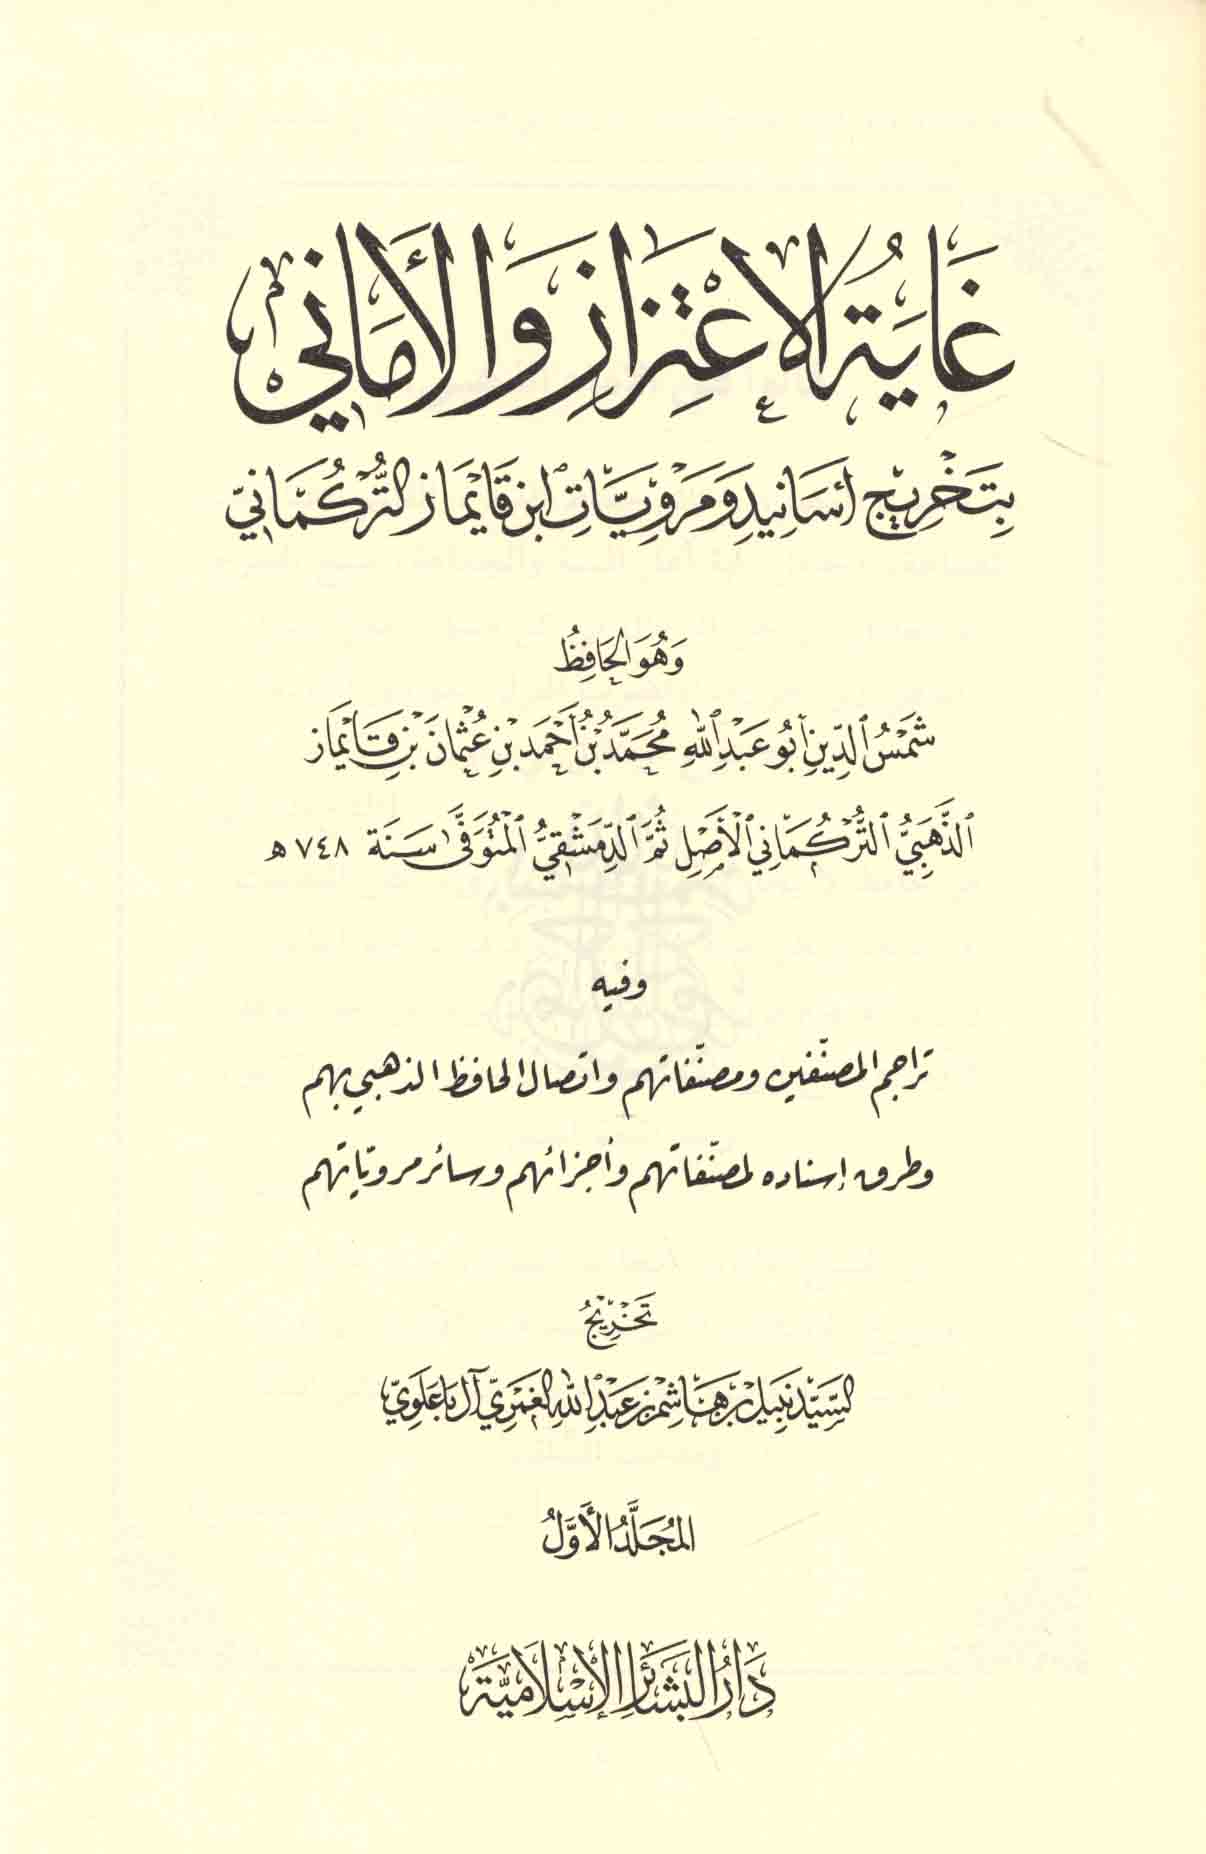 غَايَةُ الِاعْتِزَازِ وَالْأَمَانِي
بِتَخْرِيجِ أَسَانِيدِ وَمَرْوِيَّاتِ ابْنِ قَايْمَازَ التُّرْكُمَانِيّ
وَهُوَ الحَافِظُ
شَمْسُ الدِّينِ أَبُو عَبْدِ اللهِ مُحَمَّدُ بْنُ أَحْمَدَ بْنِ عُثْمَانَ بْنِ قَايْمَاز
الذَّهَبِيُّ التُّرْكُمَانِي الْأَصْلِ ثُمَّ الدِّمَشْقِيُّ الْمُتَوَفَّى سَنَةَ ٧٤٨ هـ
وفيه
تراجم المصنّفين ومصنّفاتهم واتصال الحافظ الذهبي بهم
وطرق إسناده لمصنّفاتهم وأجزائهم وسائر مرويّاتهم
تَخْرِيجُ
السَّيِّد نَبِيل بْن هَاشِم بْن عَبْدِ اللهِ الغَمْرِيّ آل بَاعَلَوِيّ
المُجَلَّدُ الأَوَّلُ
دَارُ البَشَائِرِ الإِسْلَامِيَّة